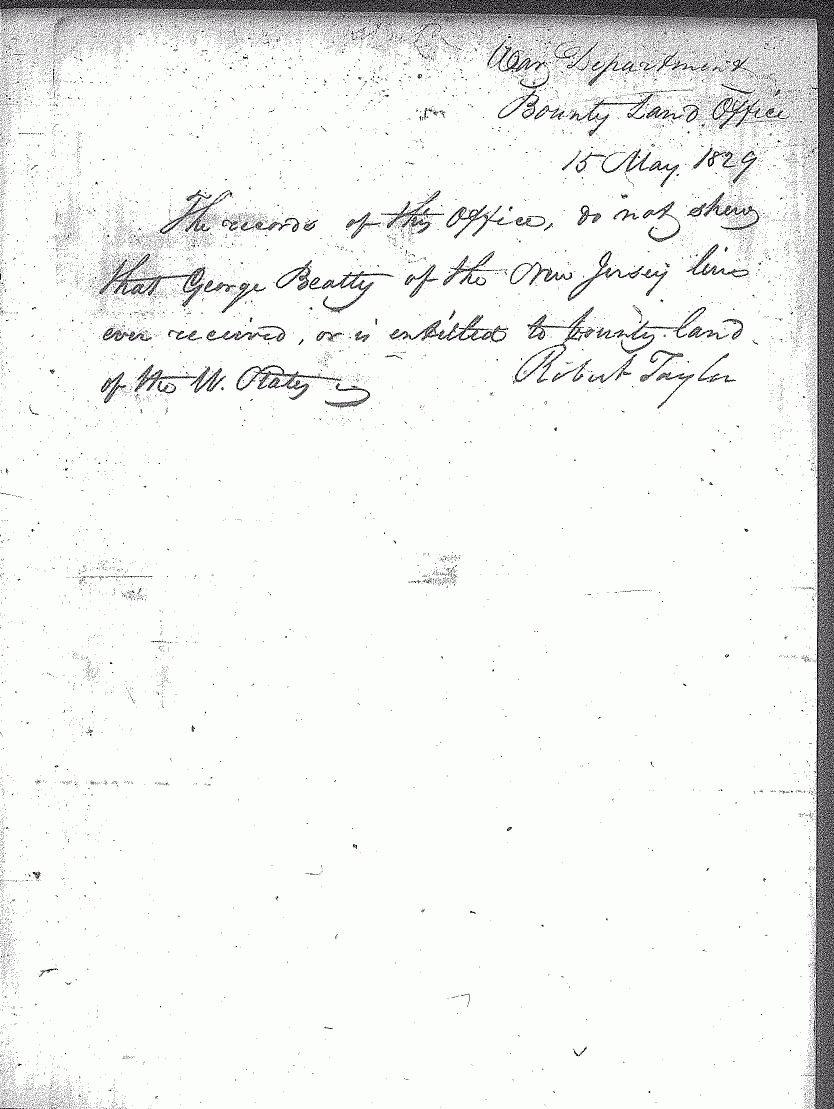 War Department
Bounty Land Office
15 May 1829
The records of this Office, do not shew
that George Beatty of the New Jersey line
ever received, or is entitled to bounty land
of the U. States
Robert Taylor